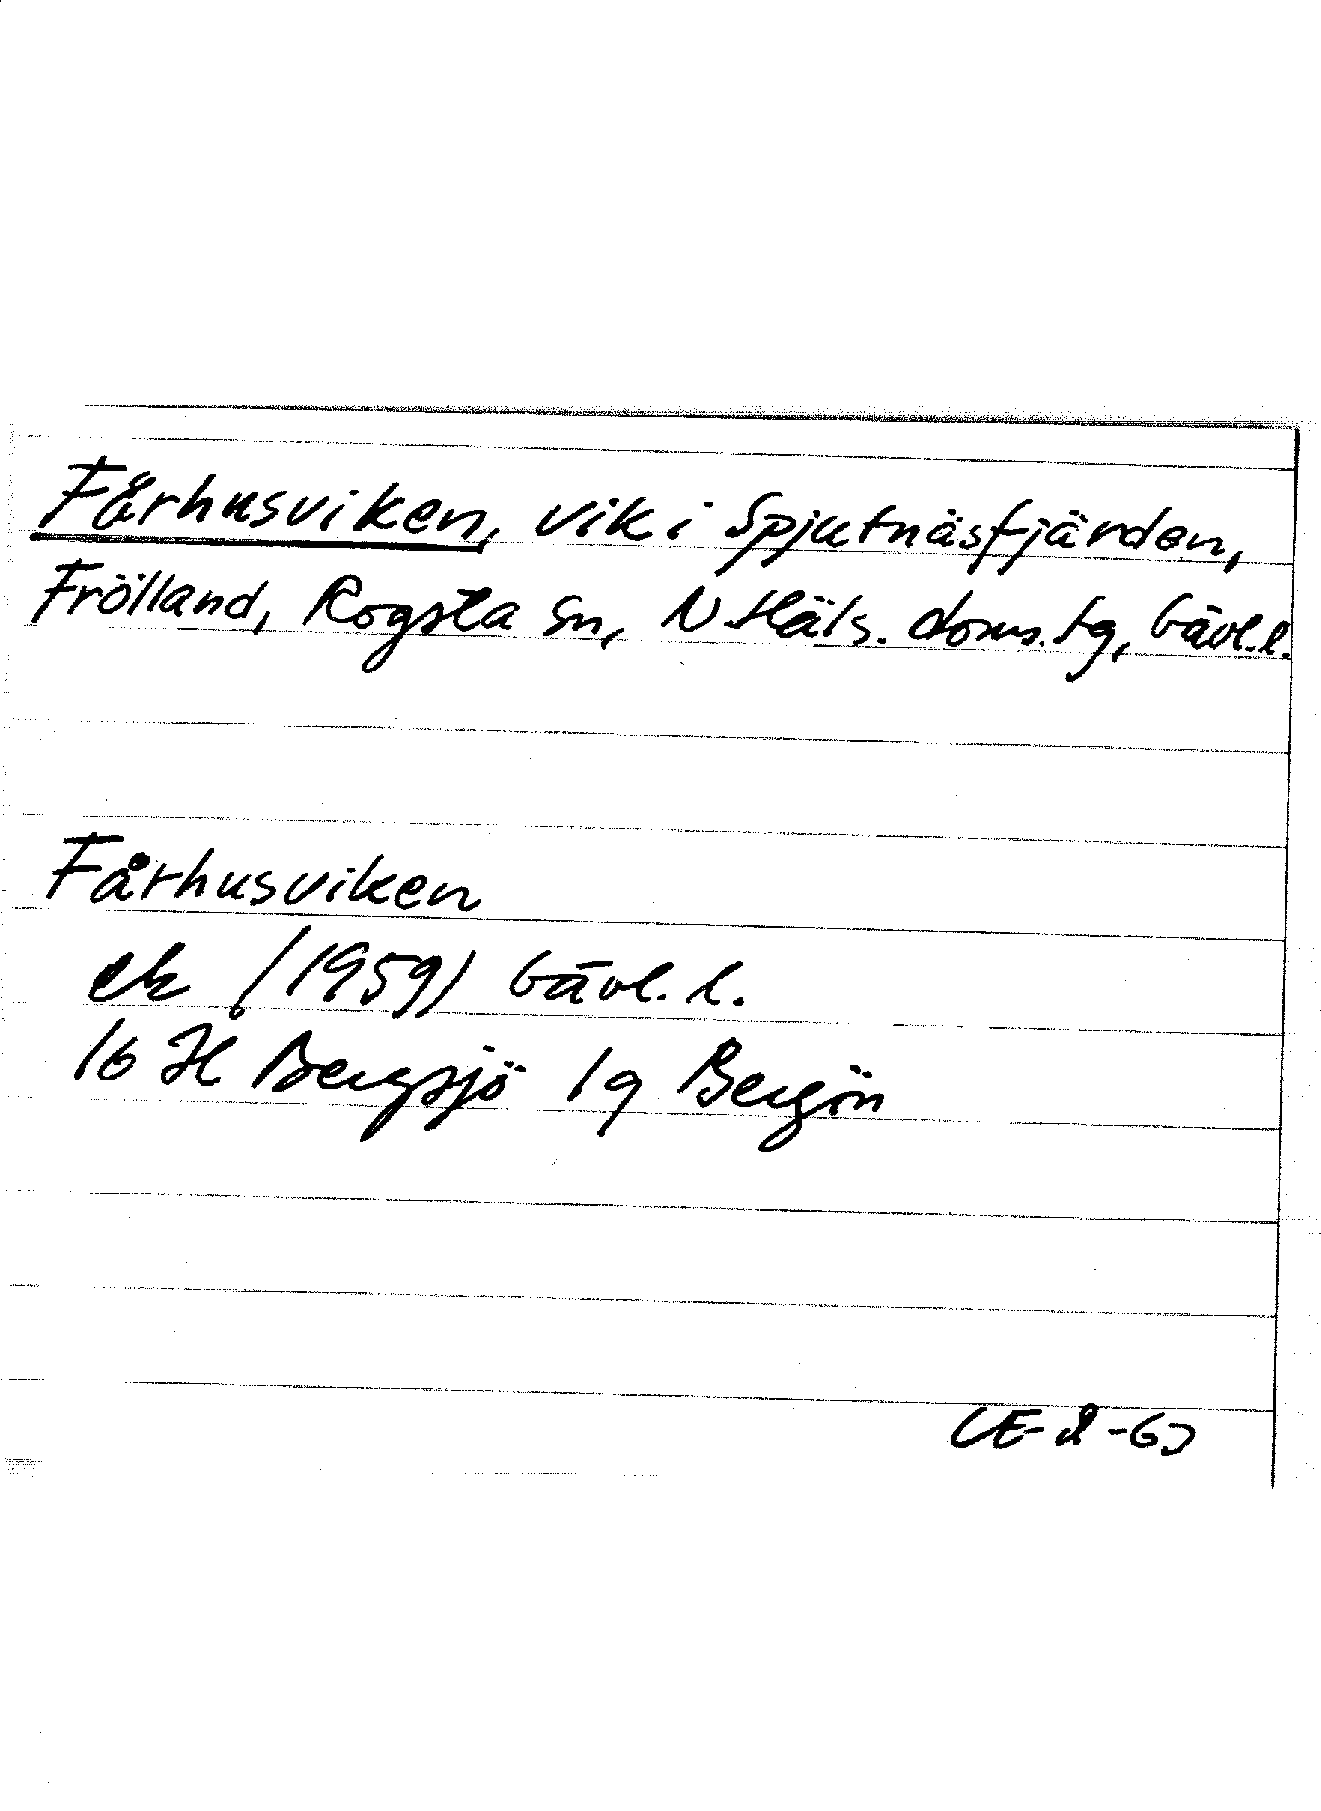 Fårhusviken, vik i Spjutnäsfjärden,
Frölland, Rogsta sn, N Häls. doms. tg, Gävl. l.
Fårhusviken
ek (1959) Gävl. l.
16 H Bergsjö 1g Bergön